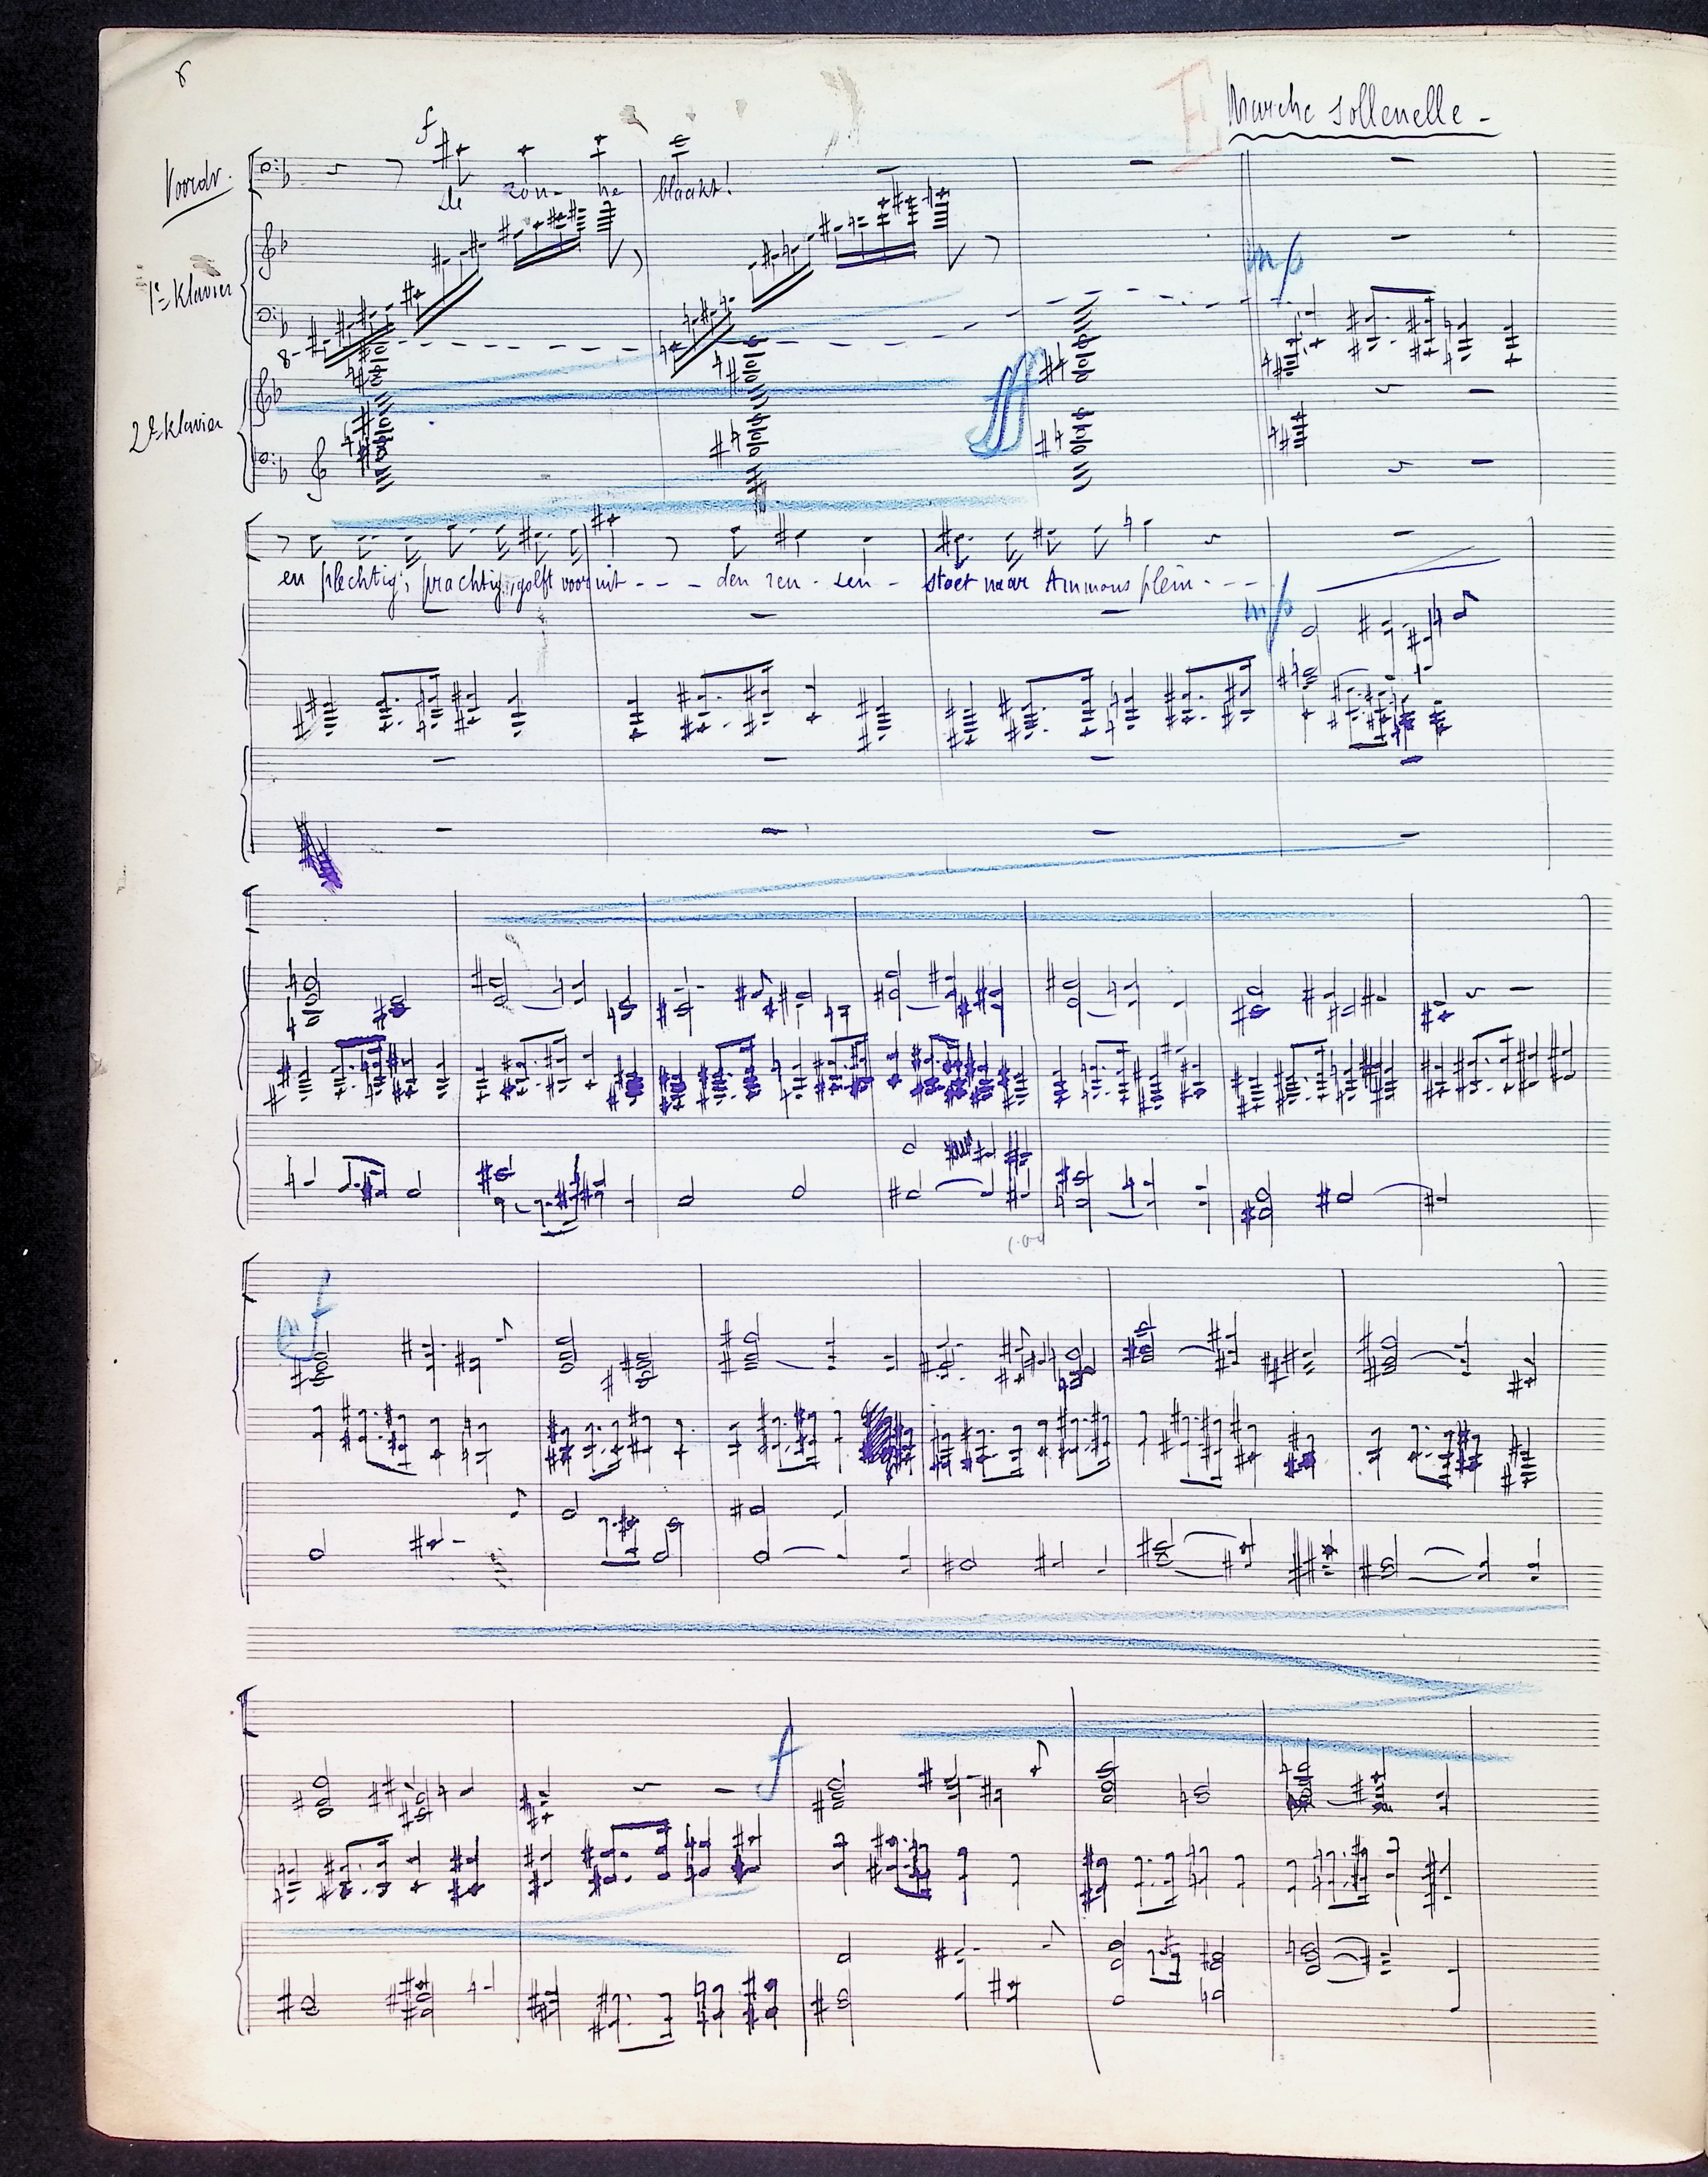 8
E Marche sollenelle -
f
Voordr.
de zon - ne blaakt!
1e Klavier
mp
8-
2e Klavier
ff
en plechtig, prachtig, golft vooruit - - - den reu - zen - stoet naar Ammons plein - - -
mp
f
f